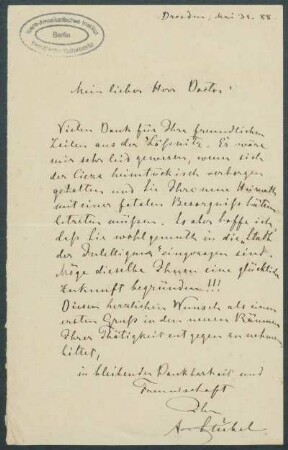 Ibero-Amerikanisches Institut
Berlin
Preußischer Kulturbesitz
Dresden, Mai 31. 88.
Mein lieber Herr Doctor!
Vielen Dank für Ihre freundlichen
Zeilen aus der Lößnitz. Es wäre
mir sehr leid gewesen, wenn sich
der heimtückisch verborgen
gehalten und Sie Ihre neue Heimath
mit einer fatalen Besorgniß hätten
betreten müssen. So aber hoffe ich,
daß Sie wohlgemuth in die Stadt
der Intelligenz eingezogen sind.
Möge dieselbe Ihnen eine glückliche
Zukunft begründen!!!
Diesen herzlichen Wunsch als einen
ersten Gruß in den neuen Räumen
Ihrer Thätigkeit entgegen zu nehmen
bittet,
in bleibender Dankbarkeit und
Freundschaft
Ihr
Stübel